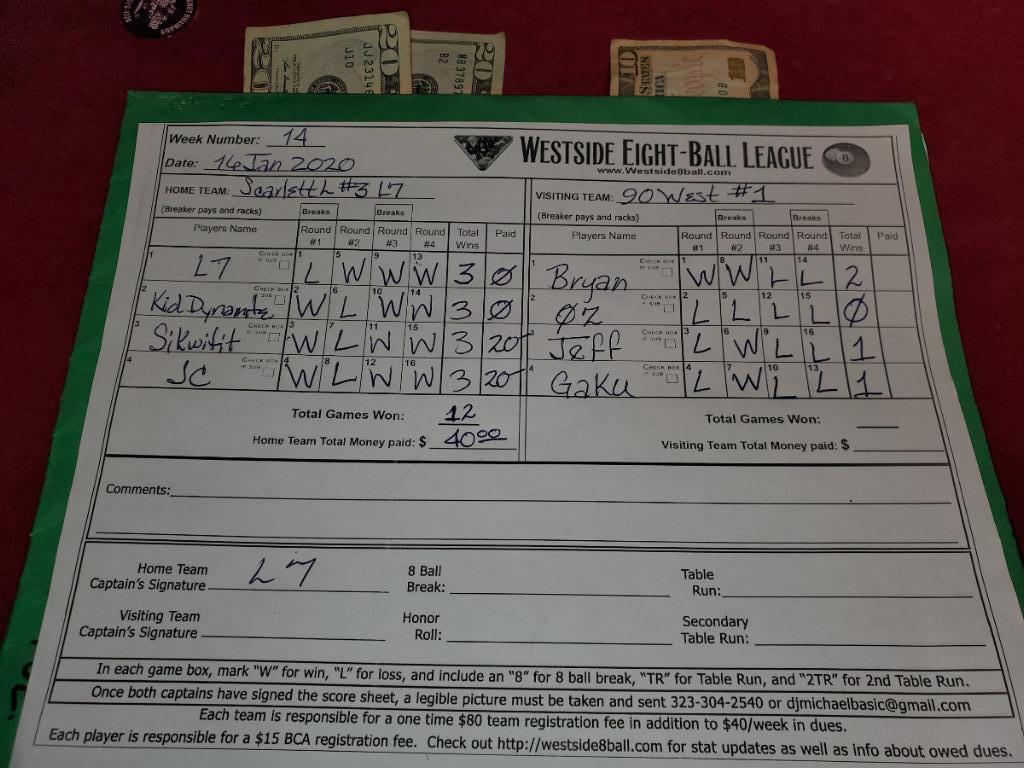 20
JJ23148
J10
20
MB37897
B2
10
Week Number: 14
WESTSIDE EIGHT-BALL LEAGUE 8
Date: 14 Jan 2020
www.Westside8ball.com
HOME TEAM: Scarlett L #3 L7 VISITING TEAM: 90 West #1
(Breaker pays and racks) Breaks Breaks (Breaker pays and racks) Breaks Breaks
Players Name Round #1 Round #2 Round #3 Round #4 Total Wins Paid Players Name Round #1 Round #2 Round #3 Round #4 Total Wins Paid
1 L7 CHECK BOX IF SUB 1 L 5 W 9 W 13 W 3 Ø 1 Bryan CHECK BOX IF SUB 1 W 8 W 11 L 14 L 2
2 Kid Dynamite CHECK BOX IF SUB 2 W 6 L 10 W 14 W 3 Ø 2 ØZ CHECK BOX IF SUB 2 L 5 L 12 L 15 L Ø
3 Sikwitit CHECK BOX IF SUB 3 W 7 L 11 W 15 W 3 20 3 Jeff CHECK BOX IF SUB 3 L 6 W 9 L 16 L 1
4 JC CHECK BOX IF SUB 4 W 8 L 12 W 16 W 3 20 4 GaKu CHECK BOX IF SUB 4 L 7 W 10 L 13 L 1
Total Games Won: 12 Total Games Won:
Home Team Total Money paid: $ 40.00 Visiting Team Total Money paid: $
Comments:
Home Team Captain's Signature L7 8 Ball Break: Table Run:
Visiting Team Captain's Signature Honor Roll: Secondary Table Run:
In each game box, mark "W" for win, "L" for loss, and include an "8" for 8 ball break, "TR" for Table Run, and "2TR" for 2nd Table Run.
Once both captains have signed the score sheet, a legible picture must be taken and sent 323-304-2540 or djmichaelbasic@gmail.com
Each team is responsible for a one time $80 team registration fee in addition to $40/week in dues.
Each player is responsible for a $15 BCA registration fee. Check out http://westside8ball.com for stat updates as well as info about owed dues.